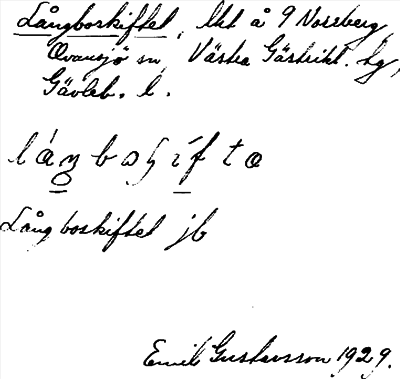 Långboskiftet, lht å 9 Nordberg,
Ovansjö sn, Västra Gästrikl. hg,
Gävleb. l.
Långboskiftet jb
Emil Gustavsson 1929.